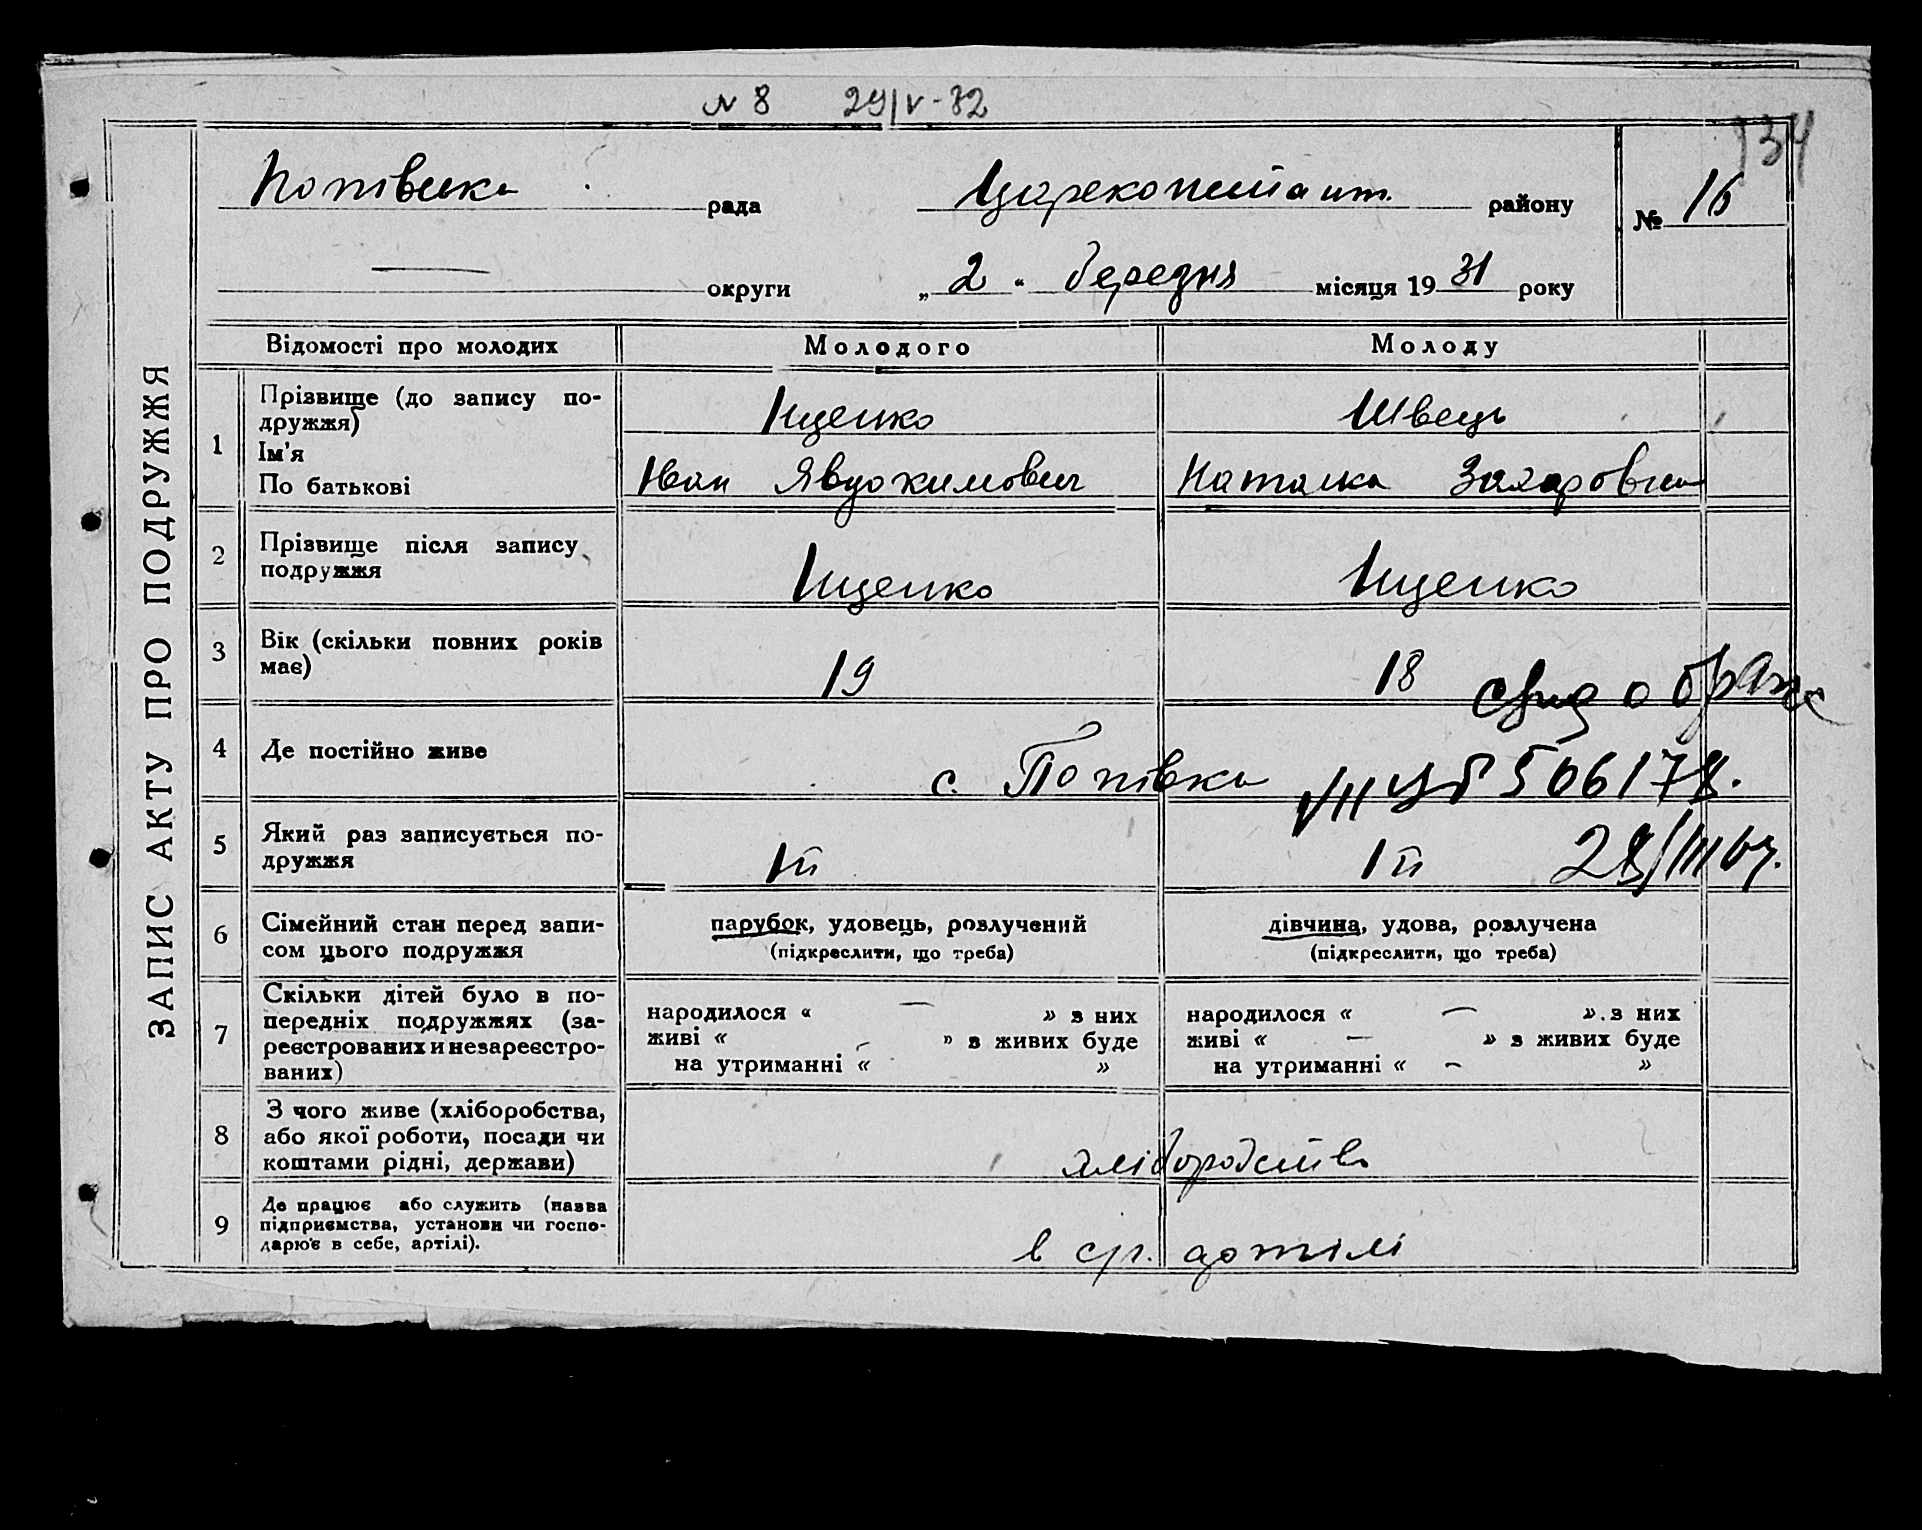 № 8 29/V-82
134
Попівська рада
району
№ 16
округи „ 2 “ березня місяця 19 31 року
ЗАПИС АКТУ ПРО ПОДРУЖЖЯ
Відомості про молодих Молодого Молоду
1 Прізвище (до запису по-
дружжя)
Ім'я
По батькові
Іщенко Швець
Іван Явдокимович Наталка Захаровна
2 Прізвище після запису
подружжя
Іщенко Іщенко
3 Вік (скільки повних років
має)
19 18
свид о браке
4 Де постійно живе
с. Попівка
506178.
5 Який раз записується по-
дружжя
1й 1й
28/III
6 Сімейний стан перед запи-
сом цього подружжя
парубок, удовець, розлучений
(підкреслити, що треба)
дівчина, удова, розлучена
(підкреслити, що треба)
7 Скільки дітей було в по-
передніх подружжях (за-
реєстрованих и незареєстро-
ваних)
народилося « — » з них
живі « — » з живих буде
на утриманні « »
народилося « — » з них
живі « — » з живих буде
на утриманні « — »
8 З чого живе (хліборобства,
або якої роботи, посади чи
коштами рідні, держави)
хліборобство
9 Де працює або служить (назва
підприємства, установи чи госпо-
дарює в себе, артілі).
в с/г. артілі